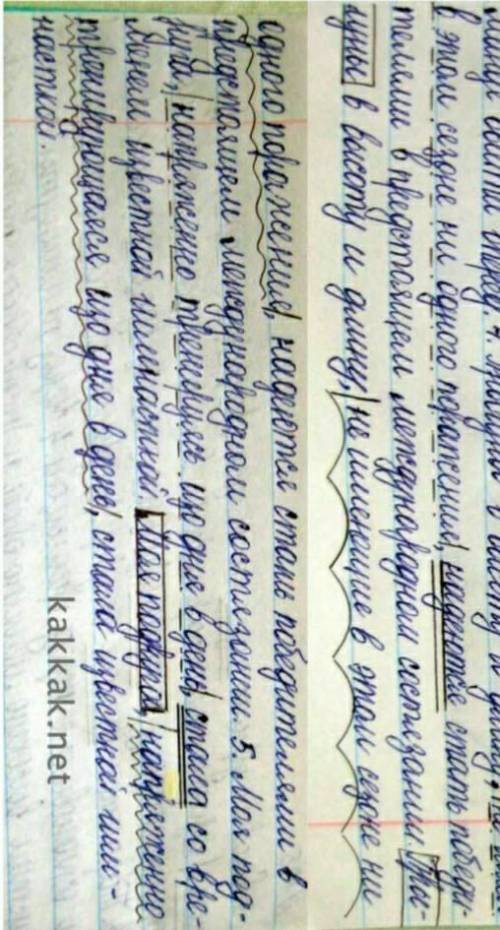 в этом сезоне ни одного поражения, надеются стать победи-
телями в предстоящем международном состязании. Пры-
гуны в высоту и длину, не имеющие в этом сезоне ни
одного поражения, надеются стать победителями в
предстоящем международном состязании. 5. Моя под-
руга, напряженно тренируясь изо дня в день, стала со вре-
менем известной гимнасткой. Моя подруга, напряженно
тренирующаяся изо дня в день, стала известной гим-
насткой.
kakkak.net